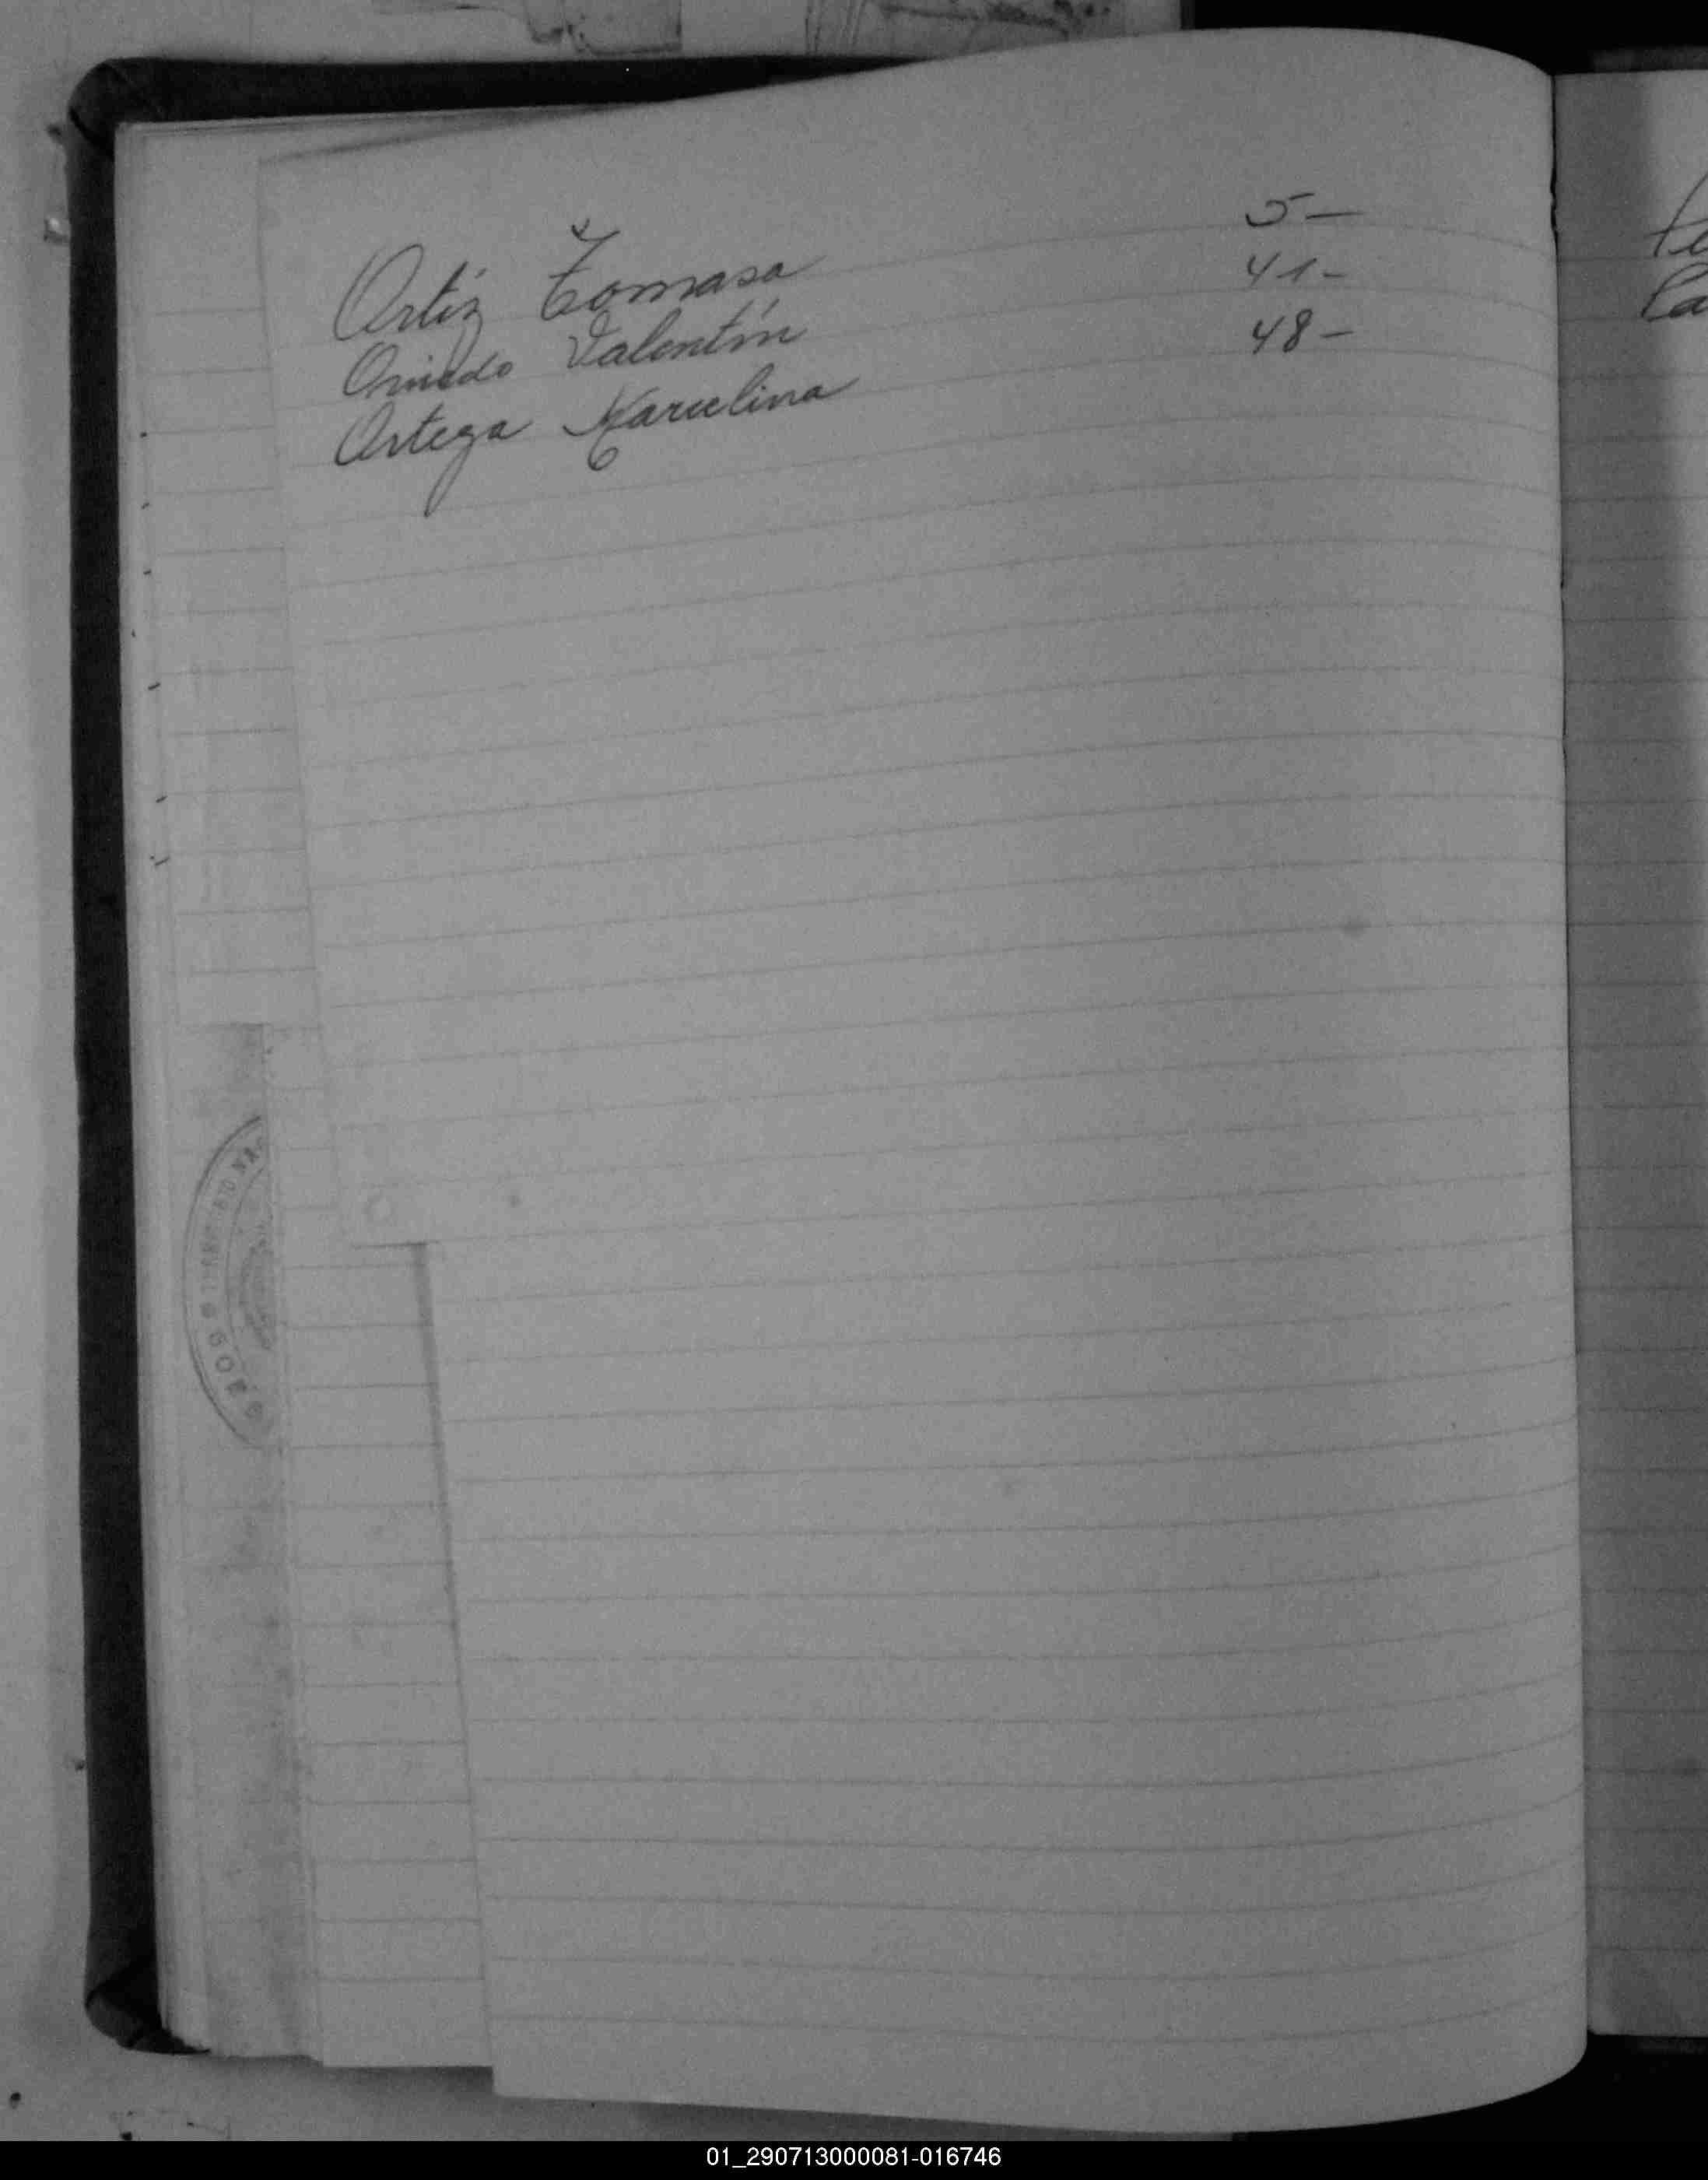 Ortiz Tomasa 5-
Oviedo Valentín 41-
Ortega Marcelina 48-
01_290713000081-016746